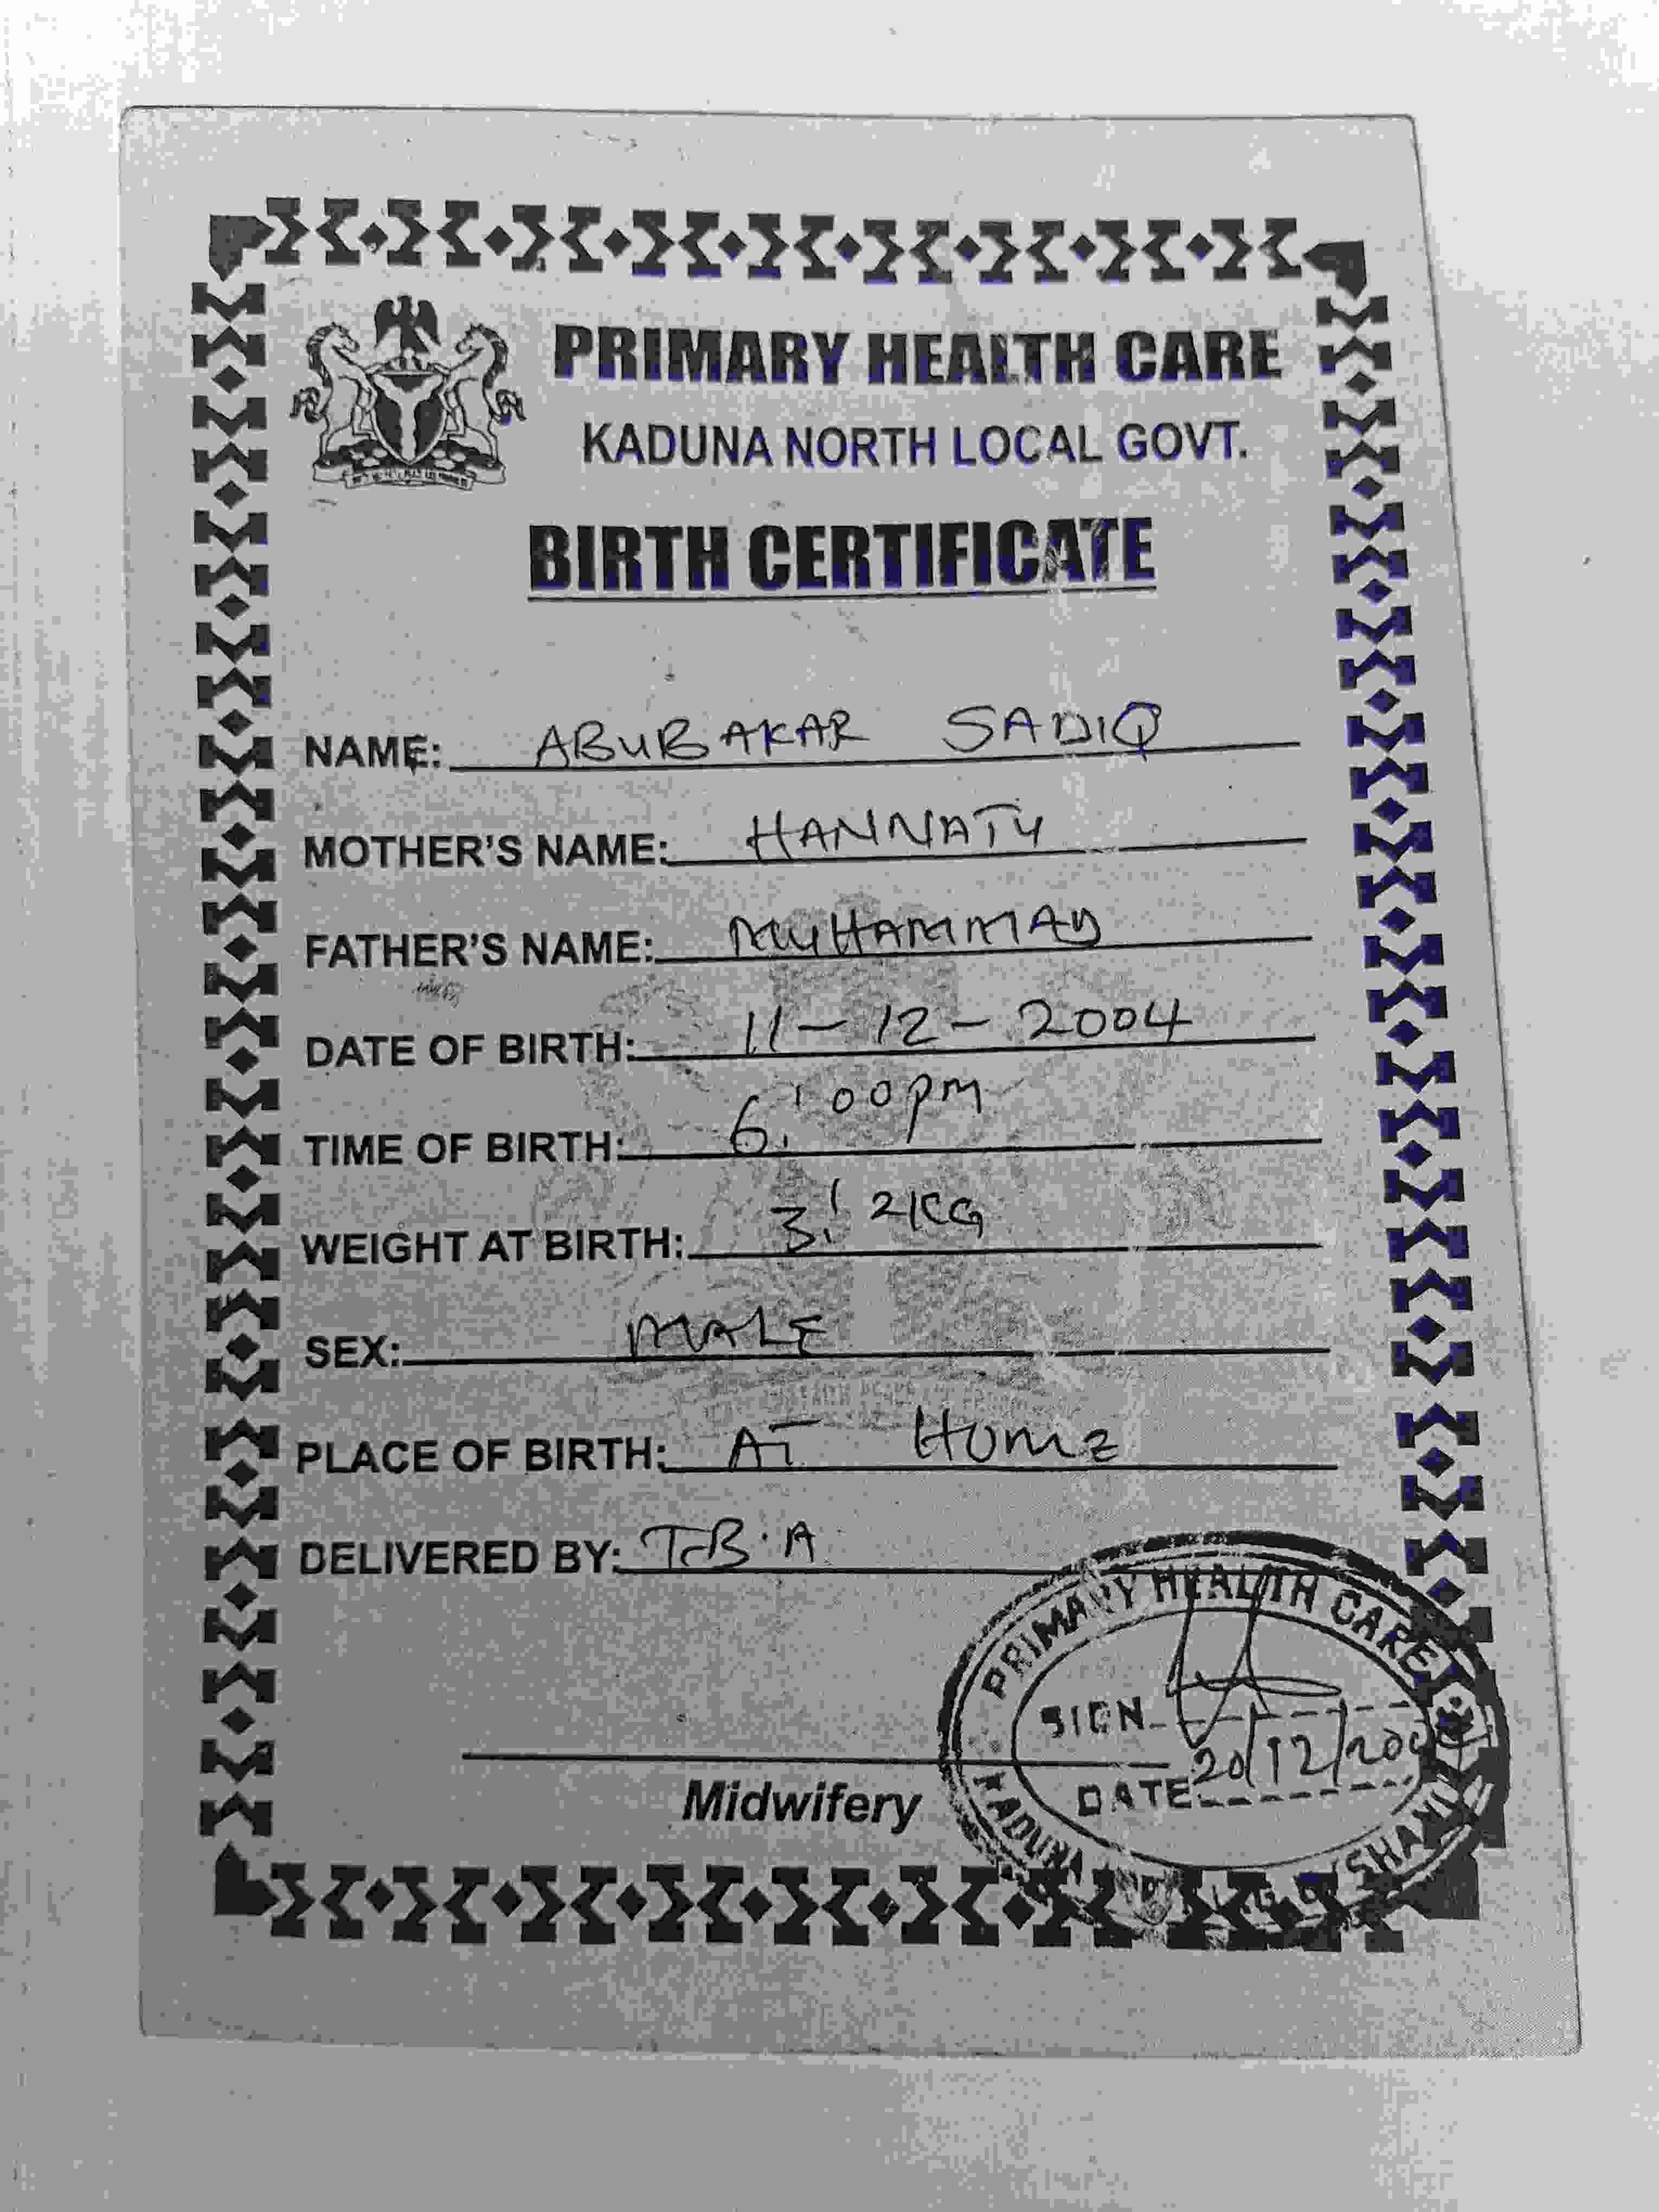 PRIMARY HEALTH CARE
KADUNA NORTH LOCAL GOVT.
BIRTH CERTIFICATE
NAME: ABUBAKAR SADIQ
MOTHER'S NAME: HANNATU
FATHER'S NAME: MUHAMMAD
DATE OF BIRTH: 11-12-2004
TIME OF BIRTH: 6:00pm
WEIGHT AT BIRTH: 3.2KG
SEX: MALE
PLACE OF BIRTH: AT Home
DELIVERED BY: T.B.A
PRIMARY HEALTH CARE
SIGN
DATE 20/12/
KADUNA
Midwifery